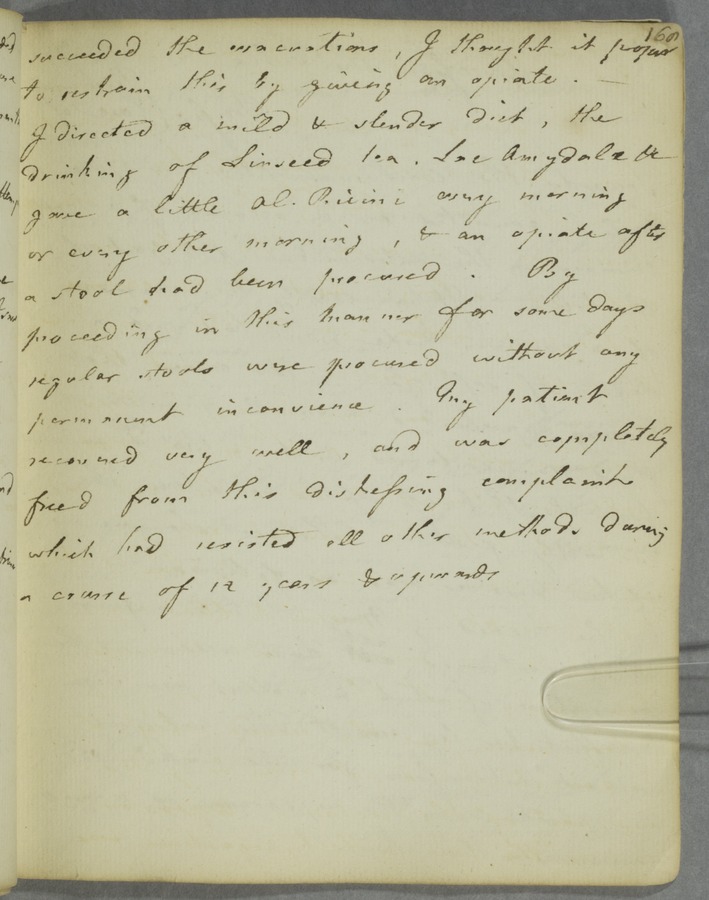 160
succeeded the evacuations, I thought it proper
to restrain this by giving an opiate. —
I directed a mild & slender diet, the
drinking of Linseed tea. Lac Amygdalæ &
gave a little Ol. Ricini every morning
or every other morning, & an opiate after
a stool had been procured. By
proceeding in this manner for some days
regular stools were procured without any
permanent inconvience. My patient
recovered very well, and was completely
freed from this distressing complaint
which had resisted all other methods during
a course of 12 years & upwards